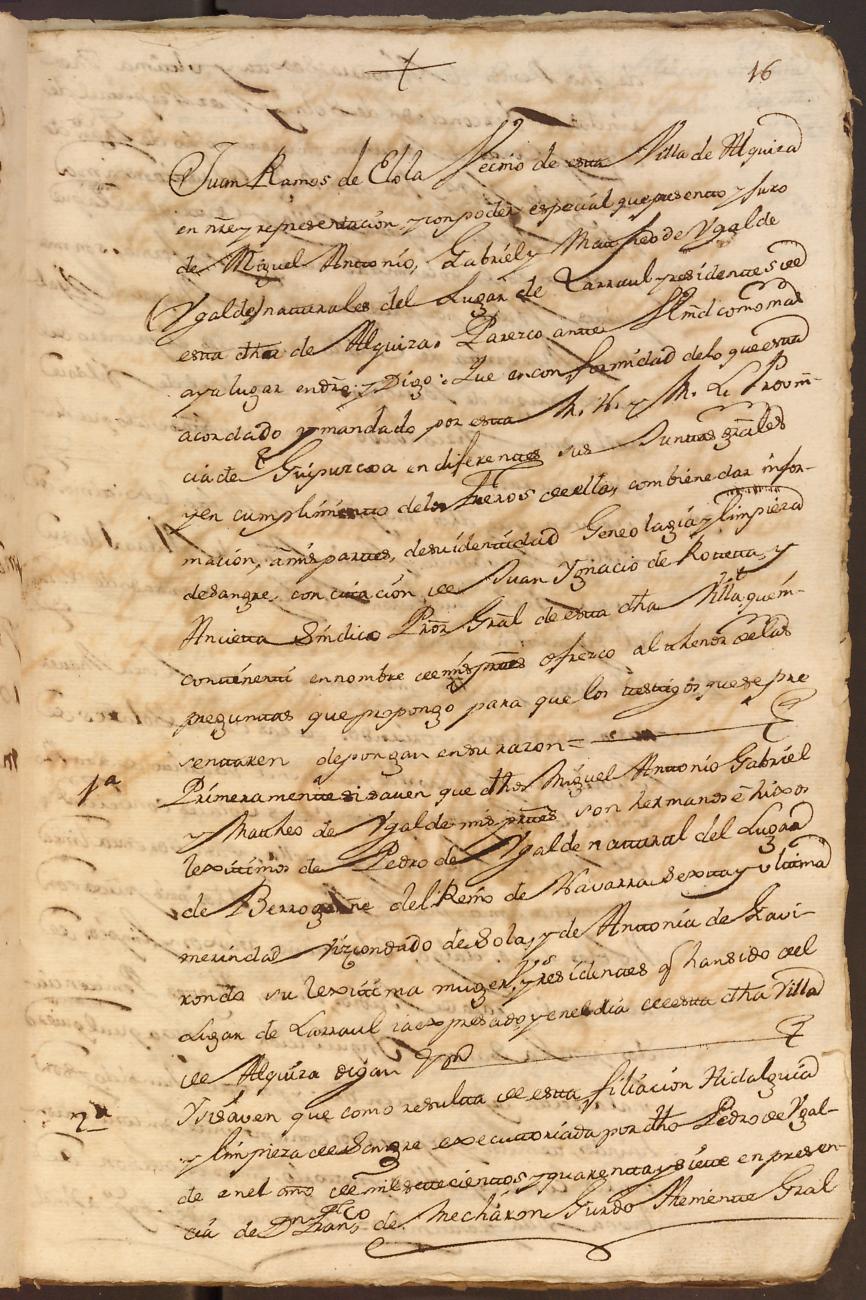 16
Juan Ramos de Elola Vecino de esta Villa de Alquiza
en nre y representacion, y con poder especial que presento y juro
de Miguel Antonio, Gabriel y Matheo de Ygalde
(Ygalde) naturales del Lugar de Larraul y residentes en
esta dha de Alquiza. Parezco ante Vmd como mas
aya lugar en dro; y Digo: Que en conformidad de lo que esta
acordado y mandado por esta M. N. y M. L. Provin-
cia de Guipuzcoa en diferentes sus Juntas grales
y en cumplimiento de los fueros de ella, combiene dar infor-
macion, a mis partes, de su identidad Geneologia y limpieza
de sangre, con citacion de Juan Ygnacio de Rotteta, y
Ancieta Síndico Pror Gral de esta dha Villa, que in-
continenti en nombre de mis ptes ofrezco al thenor de las
preguntas que propongo para que los testigos que se pre
sentaren depongan en su razon =
1a Primeramente si saven que dhos Miguel Antonio Gabriel
y Matheo de Ygalde mis ptes son hermanos é hixos
lexitimos de Pedro de Ygalde natural del Lugar
de del Reino de Navarra Sexta y ultima
merindad Vizcondado de Sola, y de Antonia de Gavi-
rondo su lexitima muger, Vs y residentes q han sido del
Lugar de Larraul ia expresado y en el dia de esta dha Villa
de Alquiza digan
2a Yt si saven que como resulta de esta filiacion Hidalguia
y limpieza de Sangre executoriada por dho Pedro de Ygal-
de en el año de mil setecientos y quarenta y siete en presen-
cia de Dn Franco de Necháron Gurdo Theniente Gral